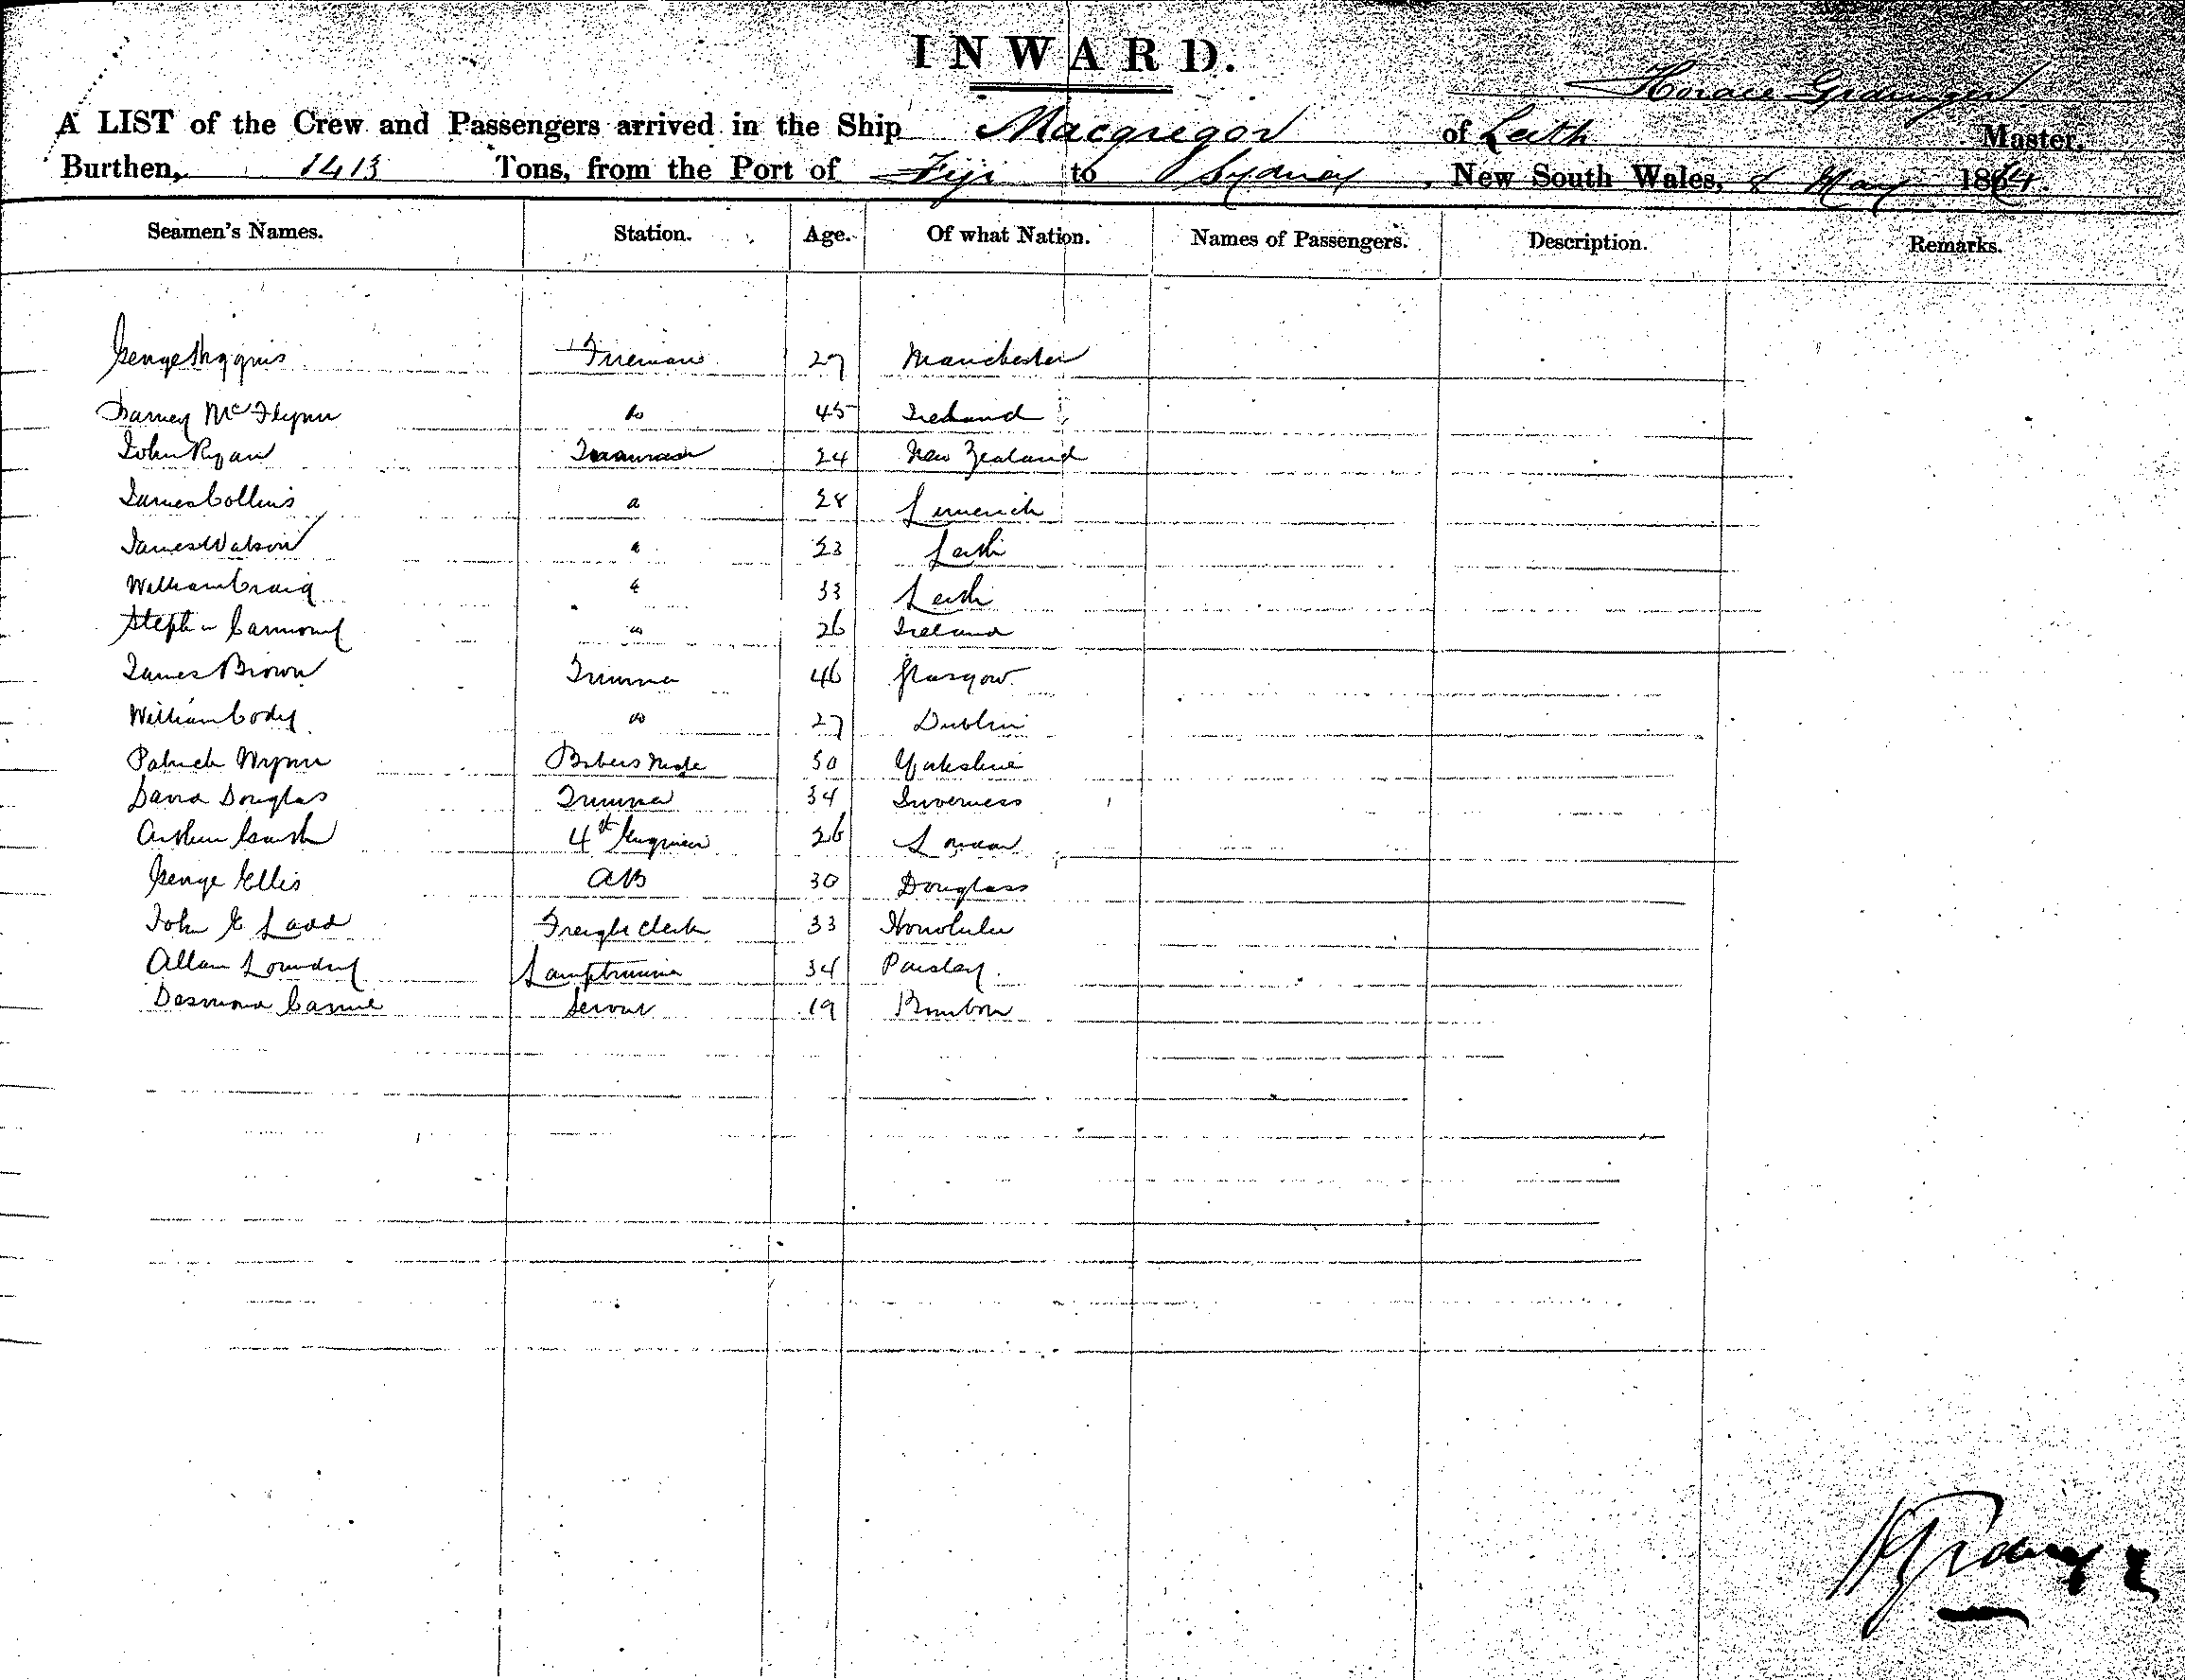 INWARD.
Horace Grainger
A LIST of the Crew and Passengers arrived in the Ship Macgregor of Leith Master,
Burthen, 1413 Tons, from the Port of Fiji to Sydney, New South Wales, 8 May 1874.
Seamen's Names. Station. Age. Of what Nation. Names of Passengers. Description. Remarks.
George Higgins Fireman 27 Manchester
Barney McFlynn Do 45 Ireland
John Ryan 24 New Zealand
James Collins 28 Limerick
James Watson 23 Leith
William Craig 33 Leith
26 Ireland
James Brown Trimmer 46 Glasgow
William Cody Do 27 Dublin
Patrick Wynn 30 Yorkshire
David Douglas Trimmer 34 Inverness
Arthur 4th Engineer 26 London
George Ellis AB 30 Douglass
John E Ladd Freight Clerk 33 Honolulu
Allan Lamptrimmer 34 Paisley.
Desmond 19